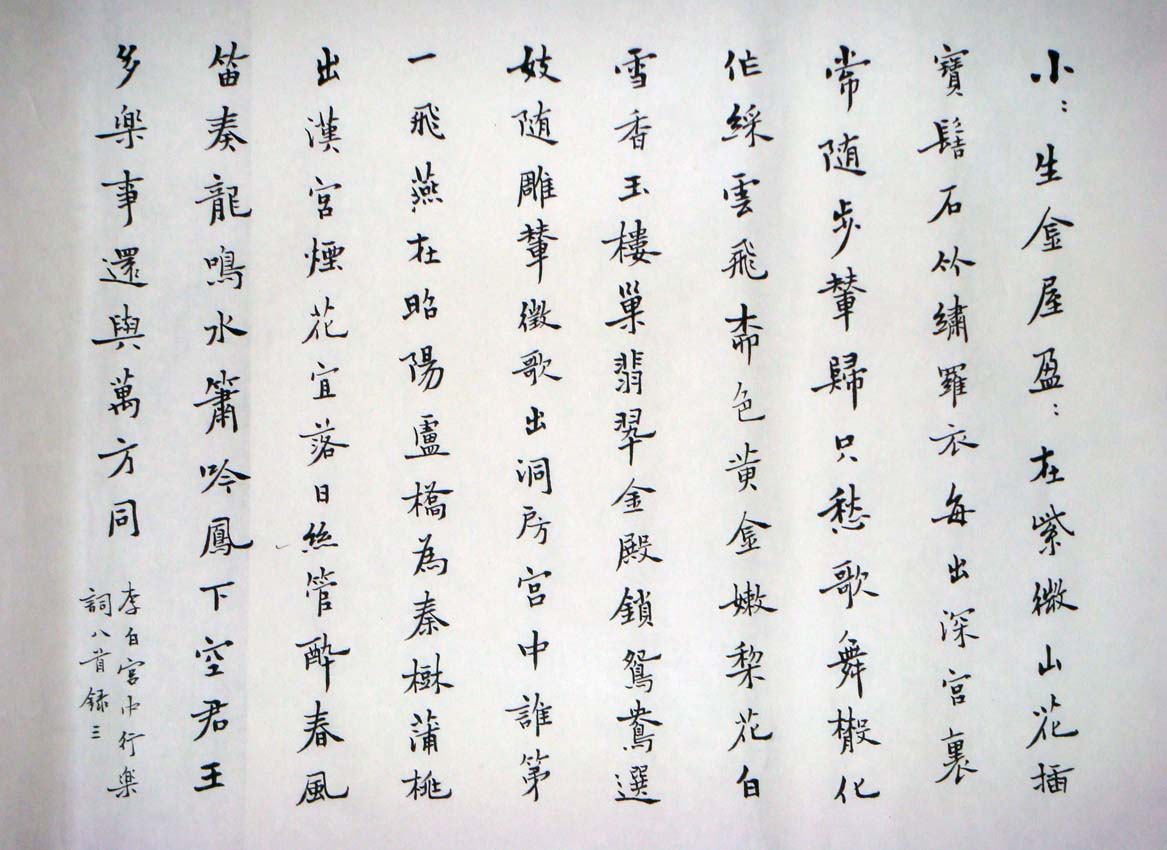 小：生金屋盈：在紫微山花插
寶髻石竹繡羅衣每出深宮裏
常随步輦歸只愁歌舞散化
作綵雲飛柳色黄金嫩梨花白
雪香玉樓巢翡翠金殿鎖鴛鴦選
妓随雕輦徵歌出洞房宮中誰第
一飛燕在昭陽盧橘為秦樹蒲桃
出漢宮煙花宜落日絲管醉春風
笛奏龍鳴水簫吟鳳下空君王
多樂事還與萬方同
李白宮中行樂
詞八首録三